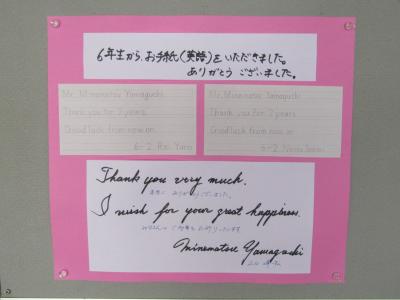 6年生から、お手紙(英語)をいただきました。
ありがとう ございました。
Mr. Minematsu Yamaguchi
Thank you for 2 years.
Good luck from now on.
6-2
Mr. Minematsu Yamaguchi
Thank you for 2 years.
Good luck from now on.
6-2
Thank you very much.
ありがとうございました。
I wish for your great happiness.
Minematsu Yamaguchi